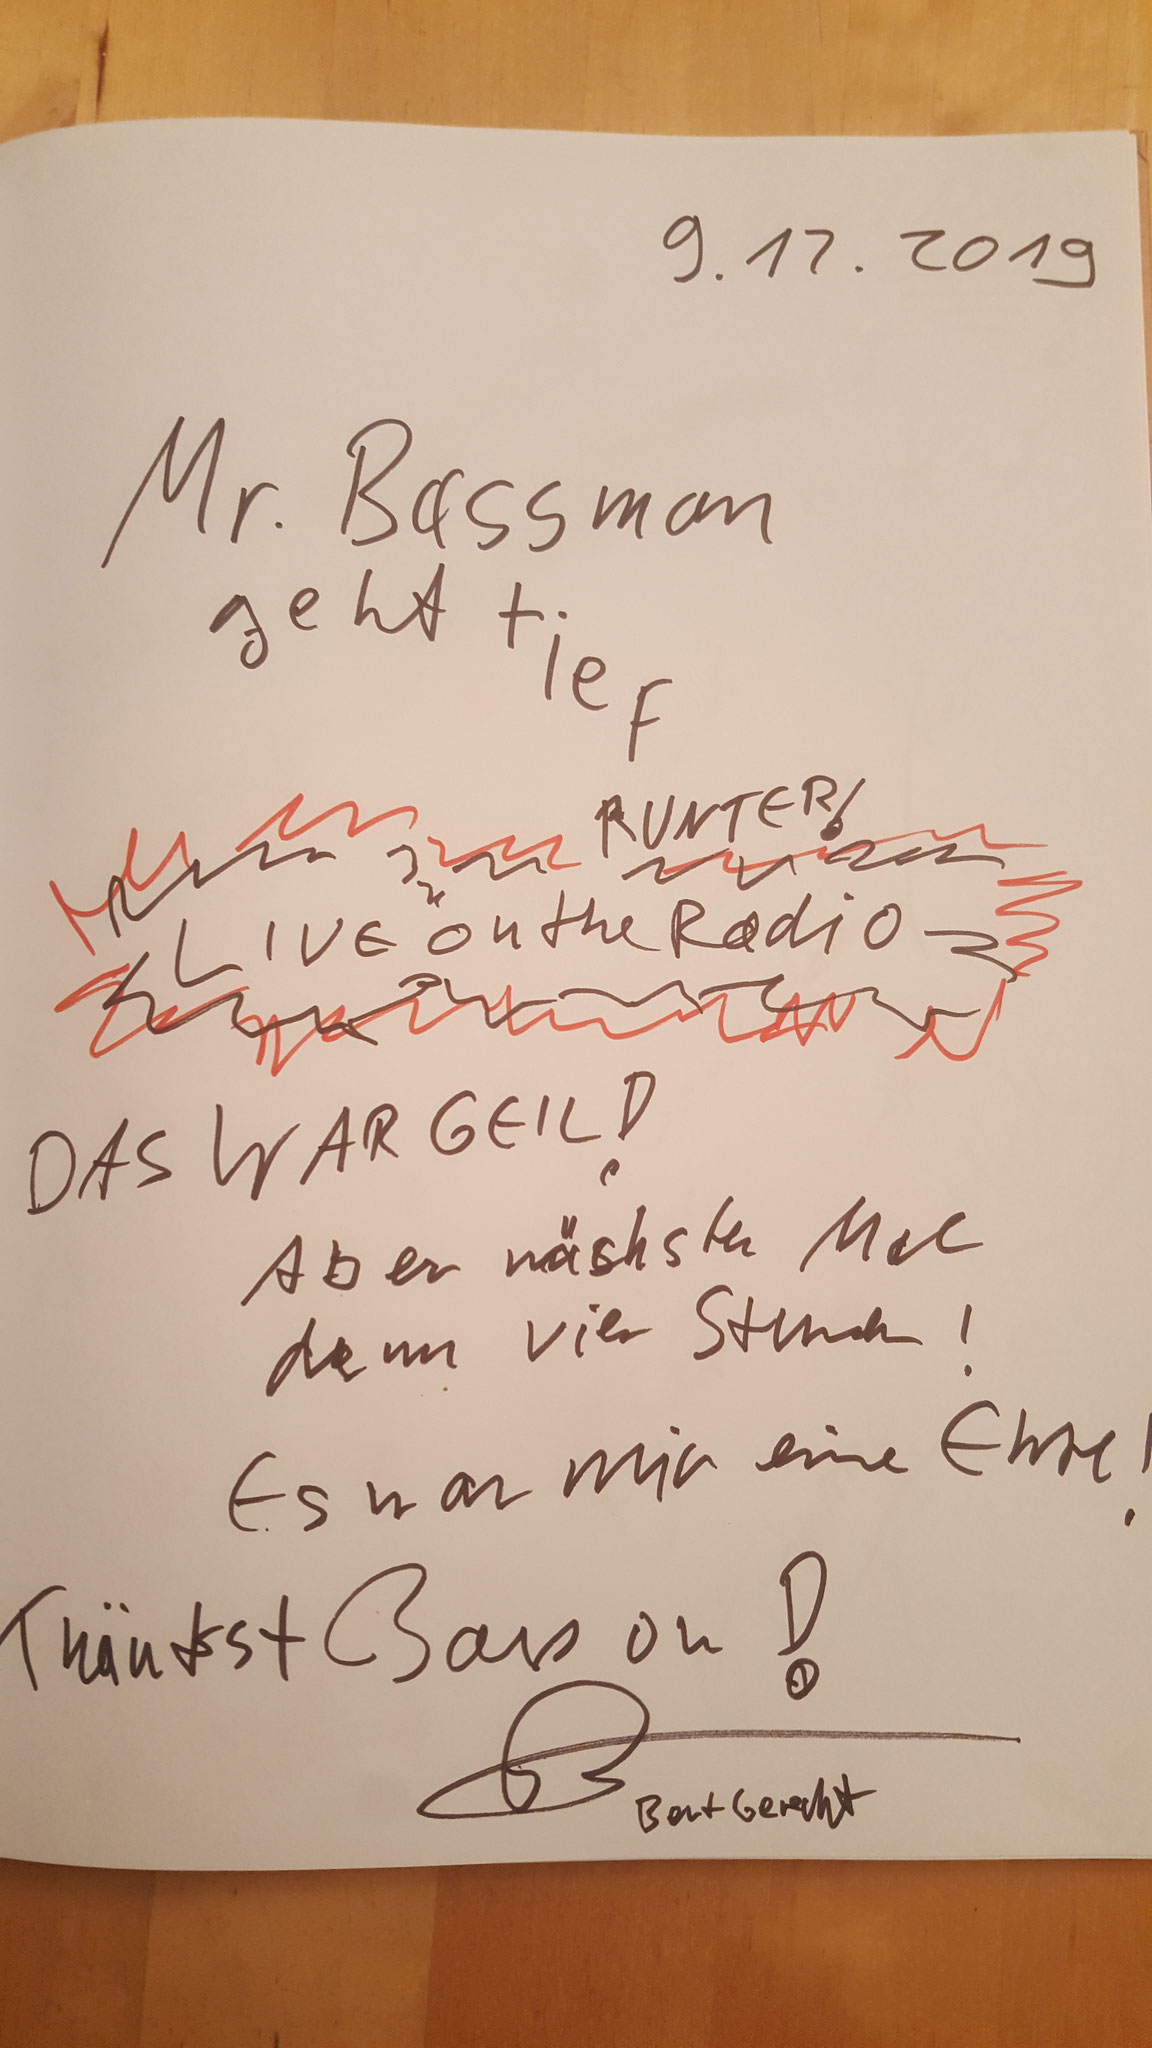 9.12.2019
Mr. Bassman
geht tief
RUNTER!
LIVE on the Radio
DAS WAR GEIL!
Aber nächstes Mal
dann vier Stunden!
Es war mir eine Ehre!
Thänkst Bass on!
Bert Gerecht